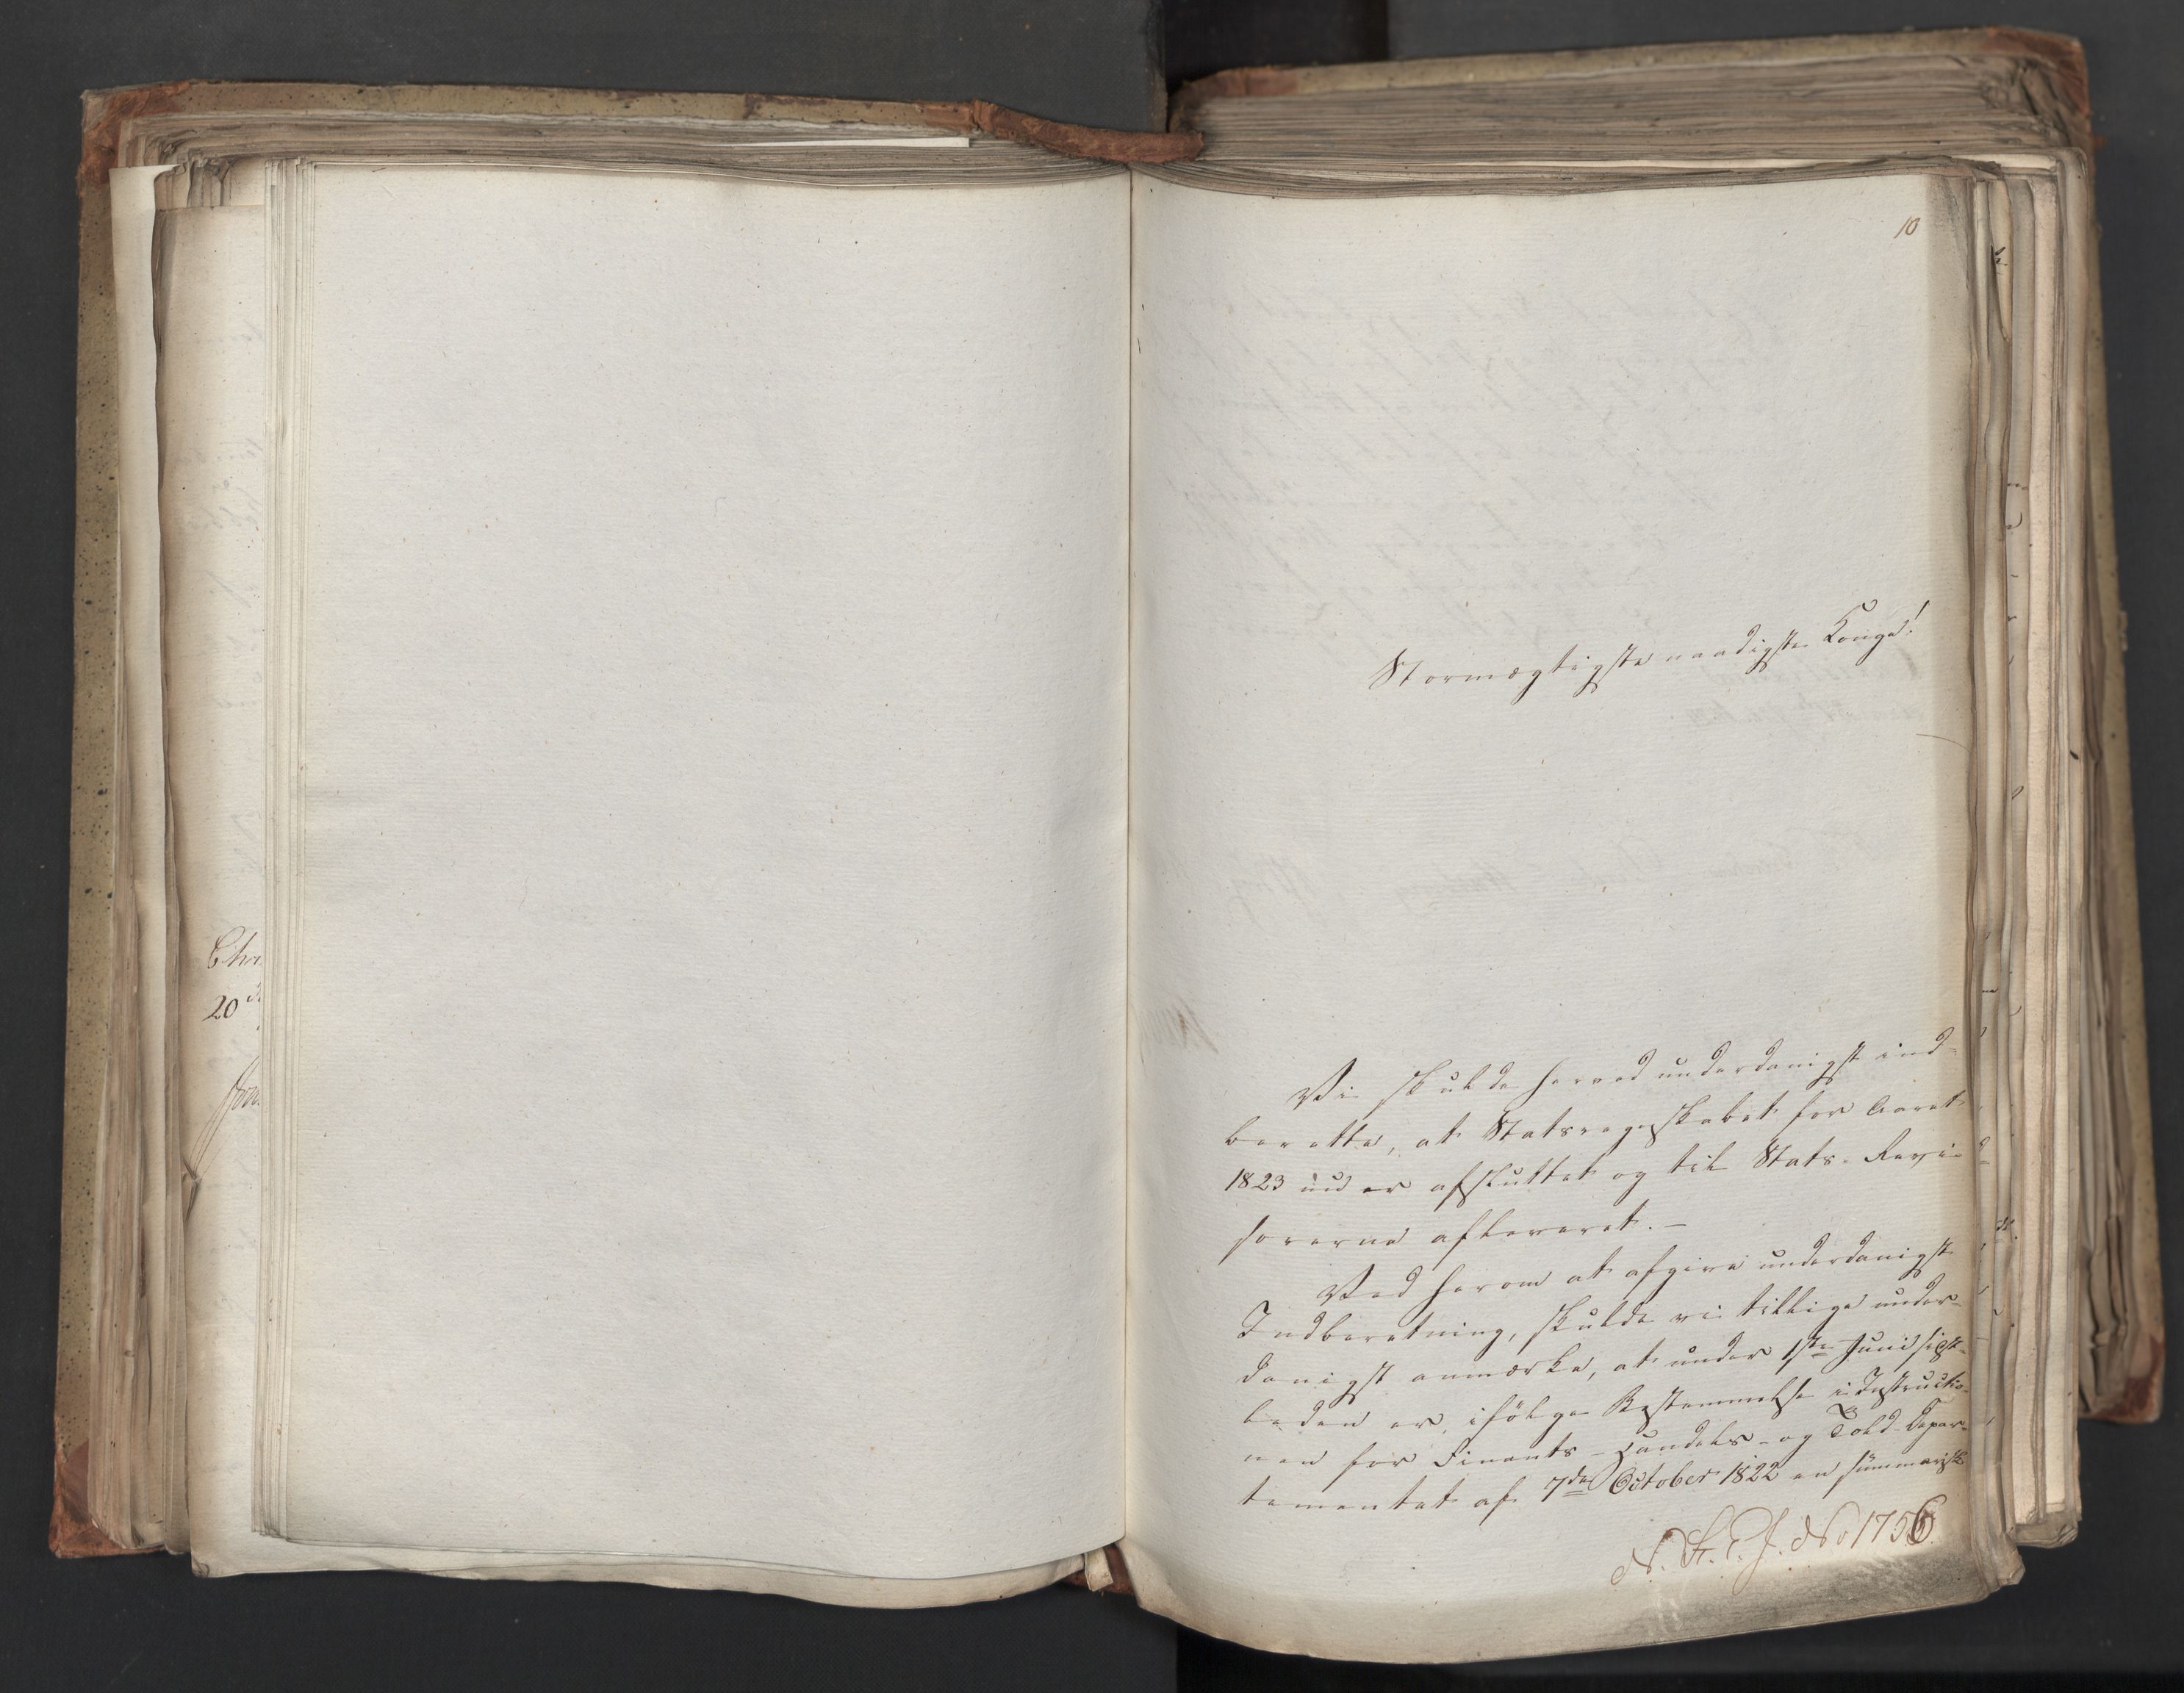 10
Stormægtigste naadigste Konge!
Vi skulde herved underdanigst ind-
berette, at Statsregnskabet for Aaret
1823 nu er afsluttet og til Stats-Revi-
sorerne afleveret. –
Ved herom at afgive underdanigst
Indberetning, skulde vi tillige under-
danigst anmærke, at under 1ste Juni sidst-
leden er, ifølge Bestemmelse i Instructio-
nen for Finants- Handels- og Told-Depar-
tementet af 7de October 1822 en summarisk
N. St. E. J. No 1756
Chr
20de